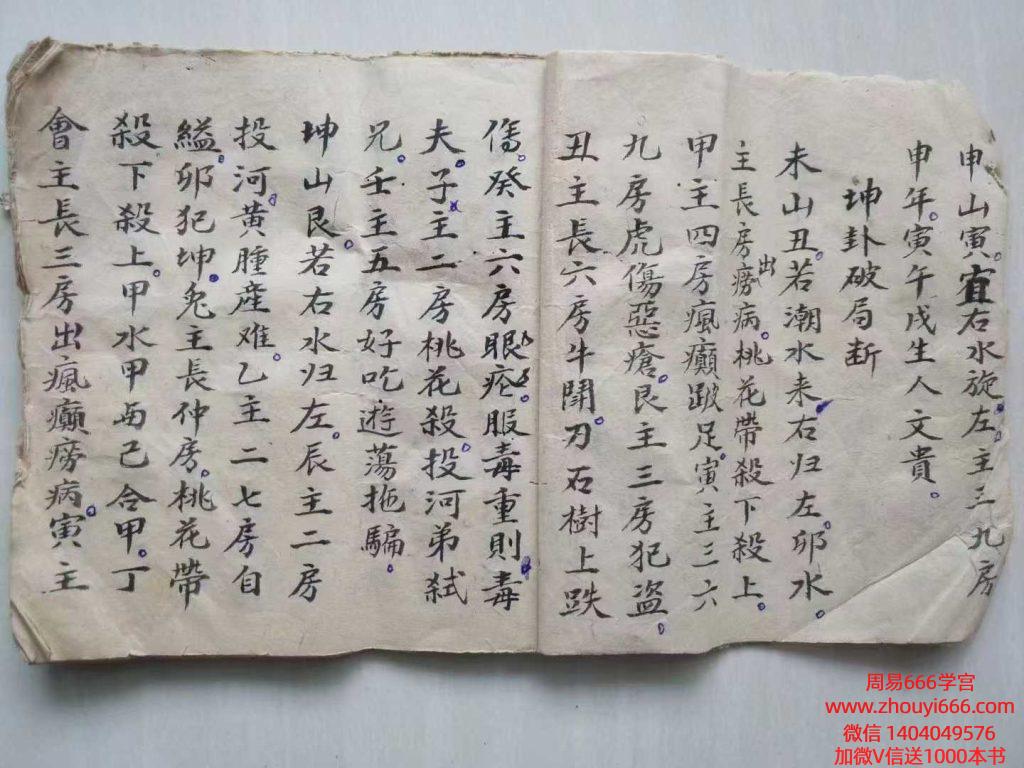 申山寅。宜右水旋左。主三九房
申年。寅午戌生人文貴。
坤卦破局断
未山丑。若潮水来右归左。卯水。
主長房出痨病。桃花帶殺下殺上。
甲主四房瘋癲跛足。寅主三六
九房虎傷惡瘡。艮主三房犯盗。
丑主長六房牛鬪刀石樹上跌
傷。癸主六房眼疾。服毒重則毒
夫。子主二房桃花殺。投河弟弑
兄。壬主五房好吃遊蕩拖騙。
坤山艮。若右水归左。辰主二房
投河。黃腫産难。乙主二七房自
縊。卯犯坤。兔主長仲房。桃花帶
殺下殺上。甲水甲與己合甲。丁
會主長三房出瘋癲痨病。寅主
周易666学宫
www.zhouyi666.com
微信 1404049576
加微V信送1000本书